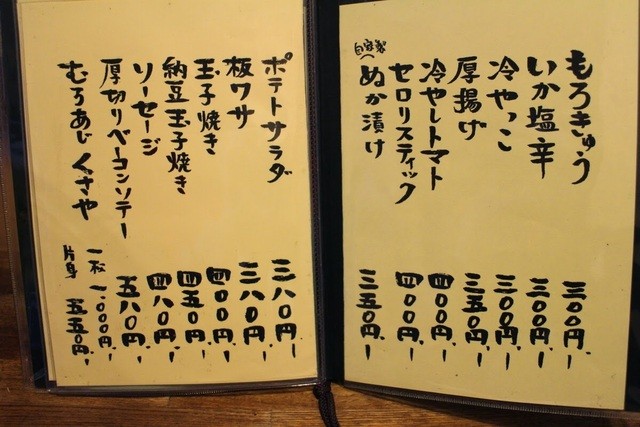 もろきゅう 三〇〇円.ー
いか塩辛 三〇〇円.ー
冷やっこ 三〇〇円.ー
厚揚げ 三五〇円.ー
冷やしトマト 四〇〇円.ー
セロリスティック 四〇〇円.ー
自家製 ぬか漬け 三五〇円.ー
ポテトサラダ 三八〇円.ー
板ワサ 三八〇円.ー
玉子焼き 四〇〇円.ー
納豆玉子焼き 四五〇円.ー
ソーセージ 四八〇円.ー
厚切りベーコンソテー 五八〇円.ー
むろあじくさや 一枚 一.〇〇〇円.ー
片身 五五〇円.ー